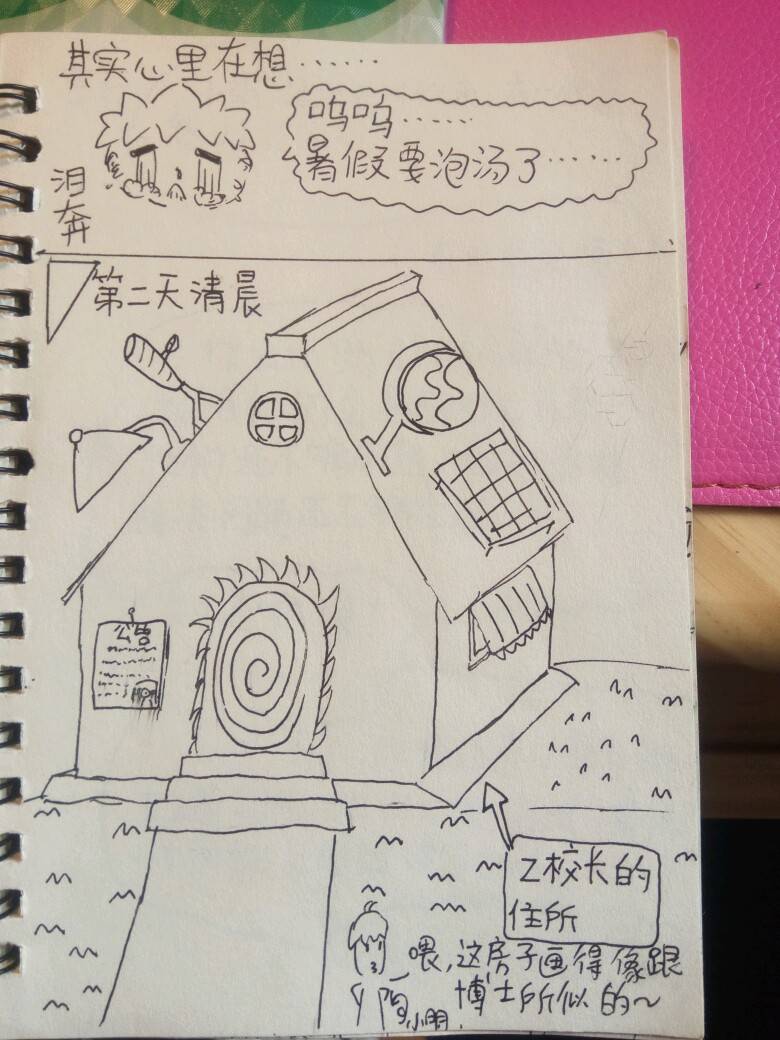 其实心里在想……
呜呜……
暑假要泡汤了……
泪奔
第二天清晨
公告
Z校长的
住所
喂,这房子画得像跟
博士所似的~
小明